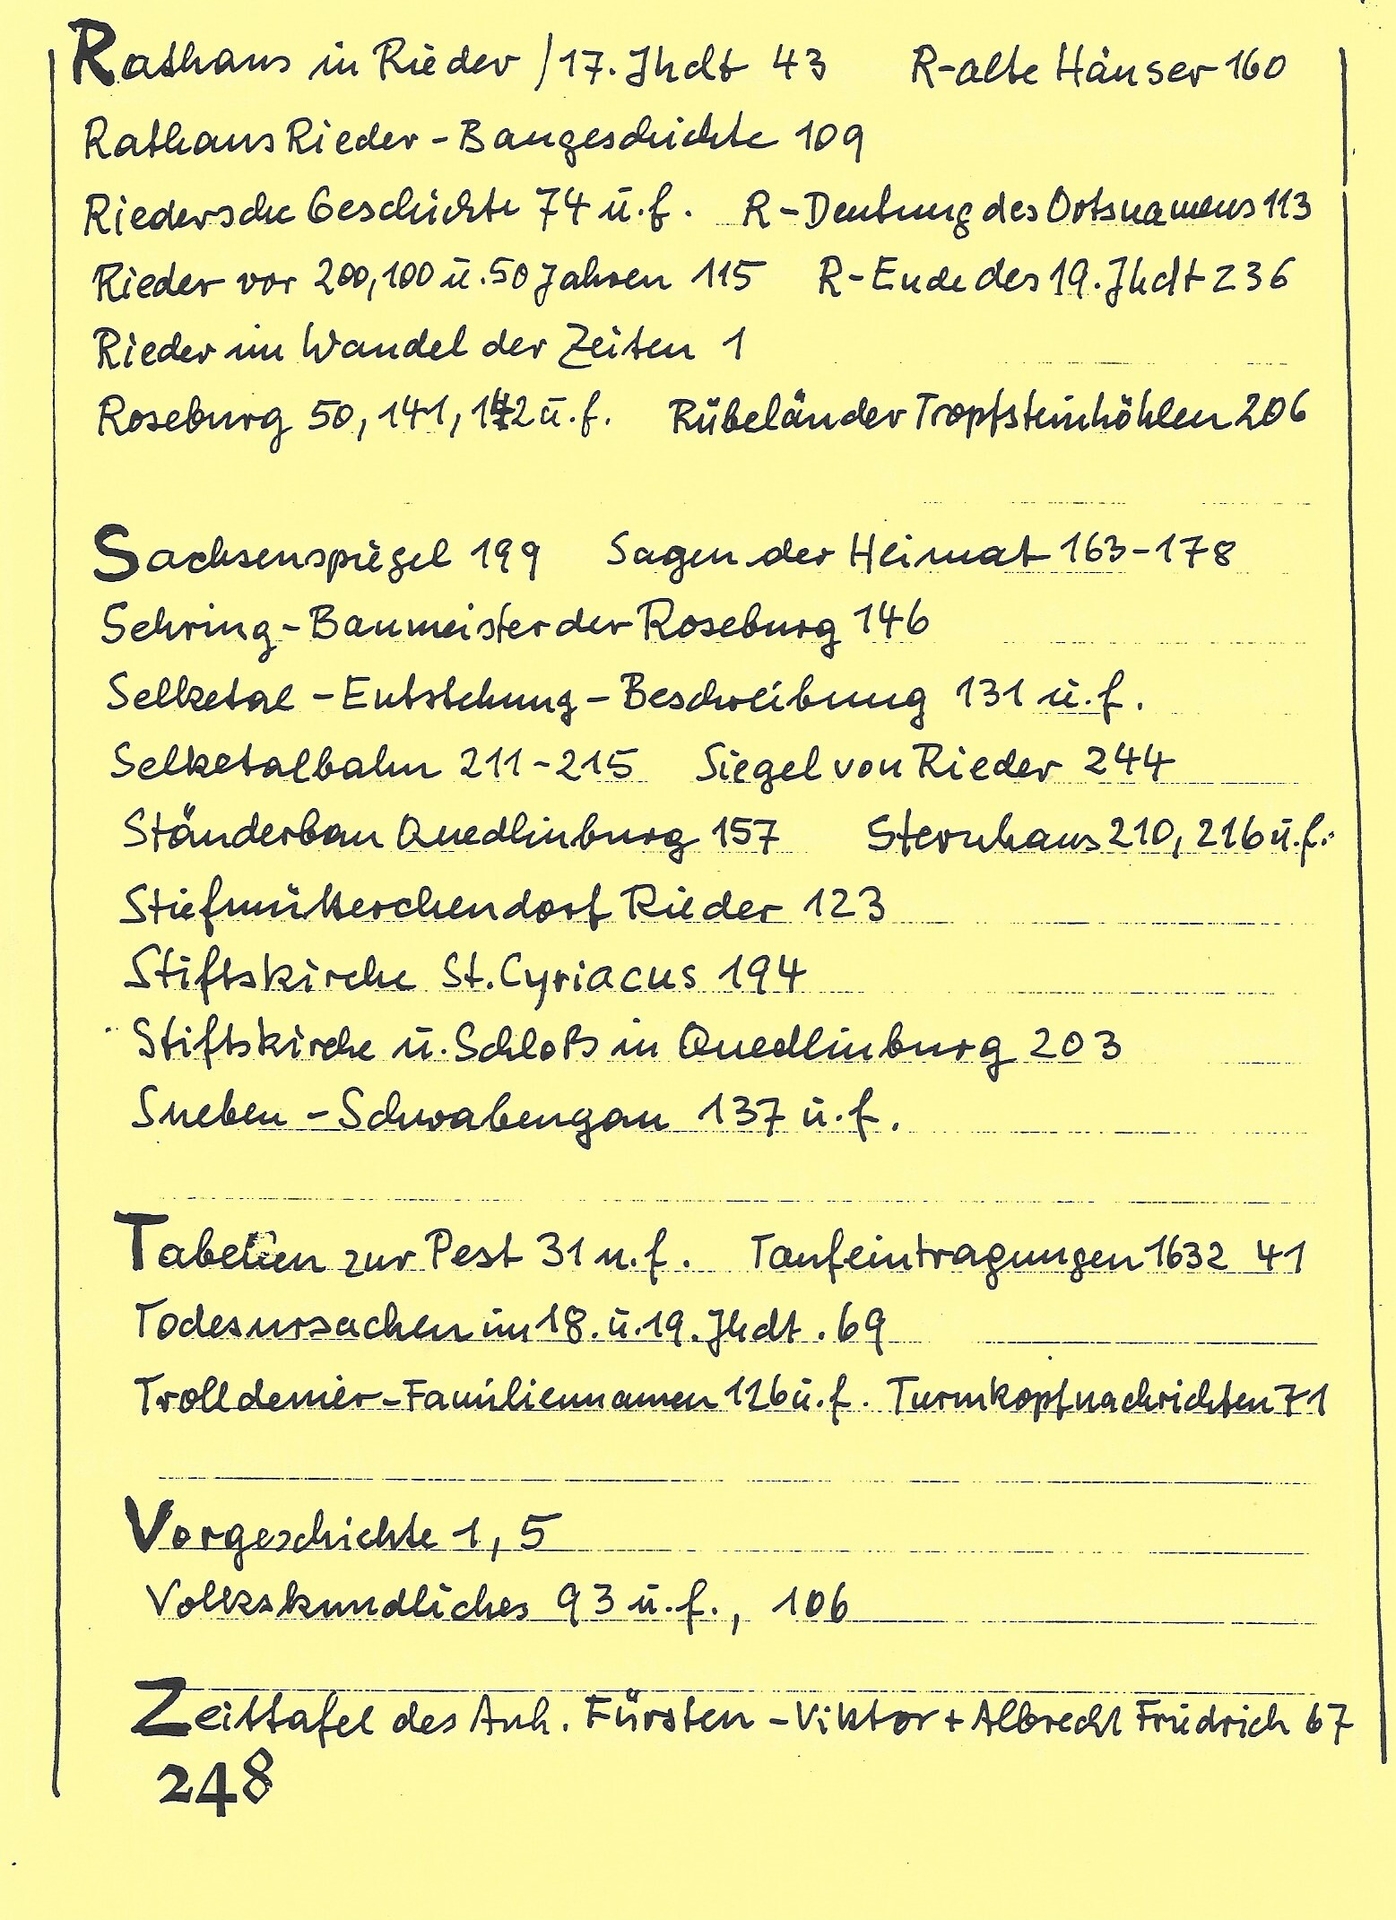 Rathaus in Rieder / 17. Jhdt 43 R-alte Häuser 160
Rathaus Rieder - Baugeschichte 109
Riedersche Geschichte 74 u. f. R - Deutung des Ortsnamens 113
Rieder vor 200, 100 u. 50 Jahren 115 R - Ende des 19. Jhdt 236
Rieder im Wandel der Zeiten 1
Roseburg 50, 141, 142 u. f. Rübeländer Tropfsteinhöhlen 206
Sachsenspiegel 199 Sagen der Heimat 163-178
Sehring - Baumeister der Roseburg 146
Selketal - Entstehung - Beschreibung 131 u. f.
Selketalbahn 211-215 Siegel von Rieder 244
Ständerbau Quedlinburg 157 Sternhaus 210, 216 u. f.
Stiefmütterchendorf Rieder 123
Stiftskirche St. Cyriacus 194
Stiftskirche u. Schloß in Quedlinburg 203
Sueben - Schwabengau 137 u. f.
Tabellen zur Pest 31 u. f. Taufeintragungen 1632 41
Todesursachen im 18. u. 19. Jhdt. 69
Trolldenier - Familiennamen 126 u. f. Turmkopfnachrichten 71
Vorgeschichte 1, 5
Volkskundliches 93 u. f., 106
Zeittafel des Anh. Fürsten - Viktor + Albrecht Friedrich 67
248